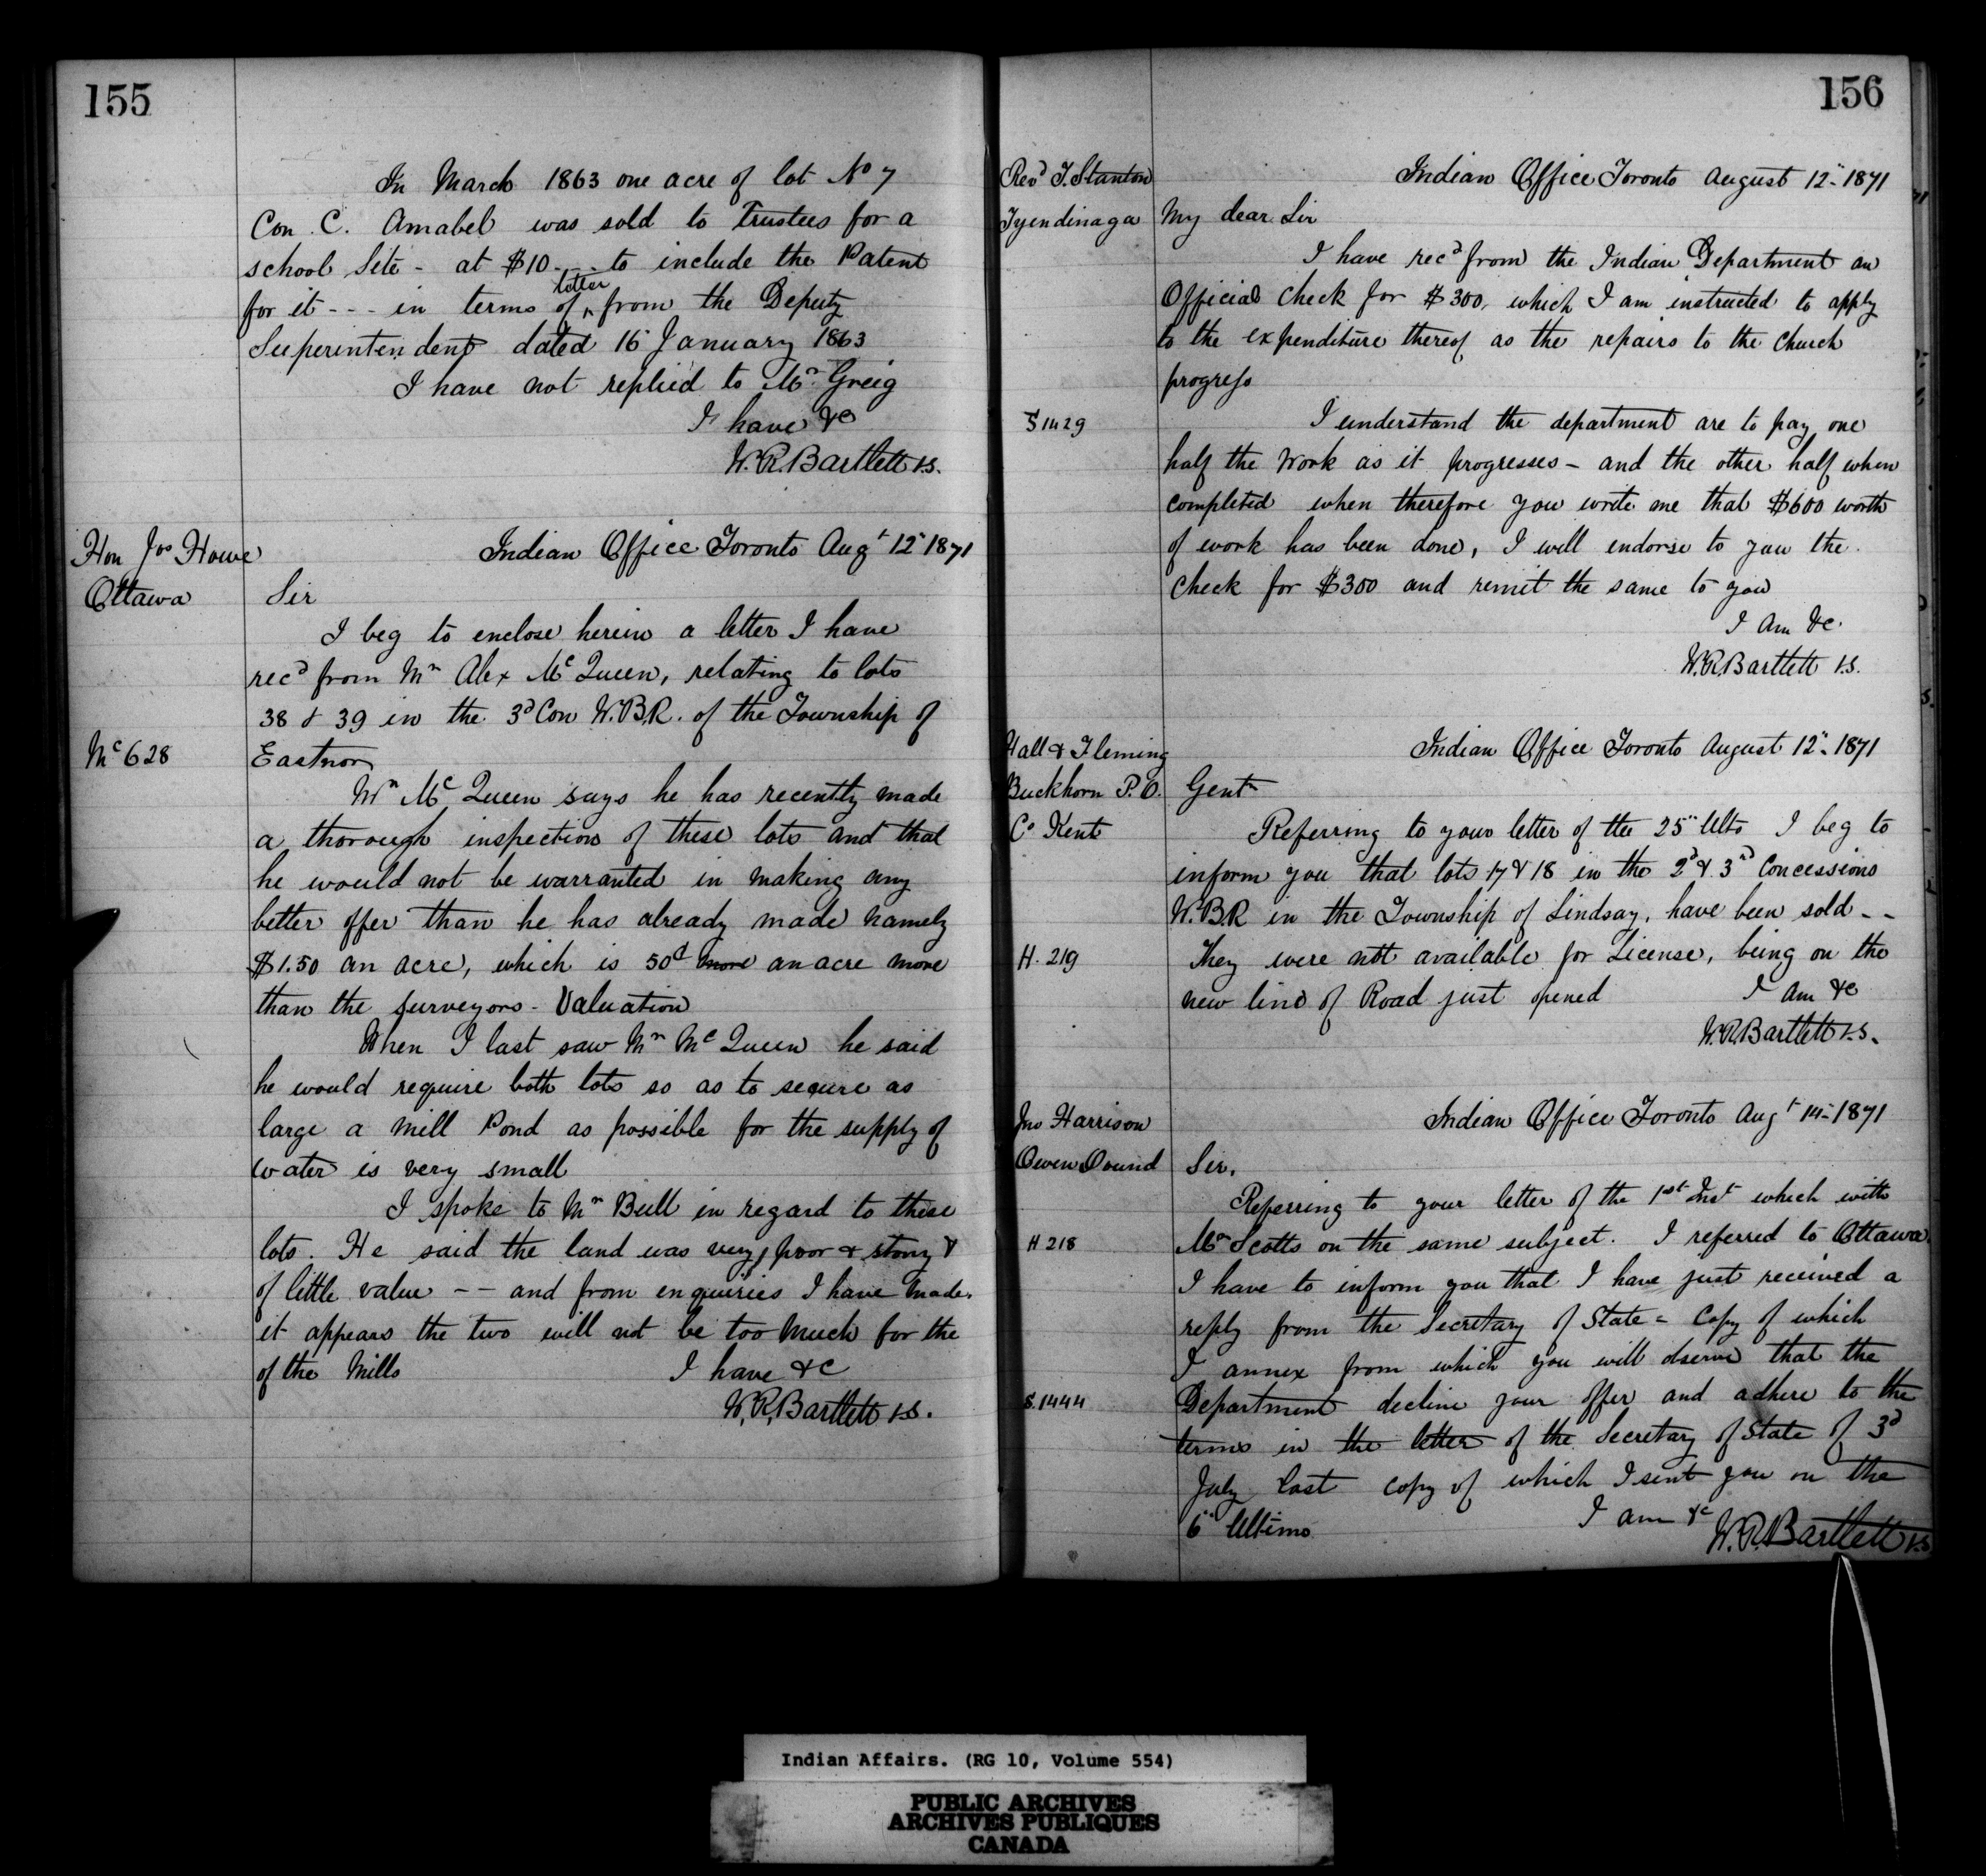 155
In March 1863 one acre of lot No 7
Con. C. Amabel was sold to Trustees for a
school Site - at $10 - - - to include the Patent
for it - - - in terms of letter from the Deputy
Superintendent dated 16 January 1863
I have not replied to Mr. Greig
I have &c
W.R. Bartlett I.S.
Hon Jos Howe
Ottawa
Indian Office Toronto Augt 12" 1871
Sir
I beg to enclose herein a letter I have
recd from Mr Alex McQueen, relating to lots
38 & 39 in the 3d Con W.B.R. of the Township of
Mc 628
Eastnor
Mr McQueen says he has recently made
a thorough inspection of these lots and that
he would not be warranted in making any
better offer than he has already made namely
$1.50 an acre, which is 50c more an acre more
than the surveyors - Valuation
When I last saw Mr McQueen he said
he would require both lots so as to secure as
large a mill Pond as possible for the supply of
water is very small
I spoke to Mr Bull in regard to these
lots. He said the land was very poor & stony &
of little value - - and from enquiries I have made
it appears the two will not be too much for the
of the Mills
I have &c
W.R. Bartlett I.S.
156
Revd T. Stanton
Tyendinaga
Indian Office Toronto August 12" 1871
My dear Sir
I have recd from the Indian Department an
Official check for $300, which I am instructed to apply
to the expenditure thereof as the repairs to the Church
progress
S 1429
I understand the department are to pay one
half the work as it progresses - and the other half when
completed when therefore you write me that $600 worth
of work has been done, I will endorse to you the
check for $300 and remit the same to you
I am &c.
W.R. Bartlett I.S.
Hall & Fleming
Buckhorn P.O.
Co Kent
Indian Office Toronto August 12" 1871
Gent
Referring to your letter of the 25" Ulto I beg to
inform you that lots 17 & 18 in the 2d & 3rd Concessions
W.B.R in the Township of Lindsay, have been sold - -
H. 219
They were not available for License, being on the
new line of Road just opened
I am &c
W.R. Bartlett I.S.
Jno Harrison
Owen Sound
Indian Office Toronto Augt 14" 1871
Sir,
Referring to your letter of the 1st Inst which with
H 218
Mr Scotts on the same subject. I referred to Ottawa.
I have to inform you that I have just received a
reply from the Secretary of State = Copy of which
I annex from which you will observe that the
S. 1444
Department decline your offer and adhere to the
terms in the letter of the Secretary of State of 3d
July last copy of which I sent you on the
6" Ultimo
I am &c
W.R. Bartlett I.S
Indian Affairs. (RG 10, Volume 554)
PUBLIC ARCHIVES
ARCHIVES PUBLIQUES
CANADA